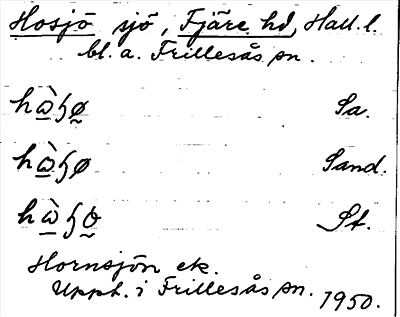 Hosjö sjö, Fjäre hd, Hall. l.
bl. a. Frillesås sn.
hὼɧø̰ Sa.
hὼɧø Sand.
hὼɧo̰ St.
Hornsjön ek.
Uppt. i Frillesås sn. 1950.